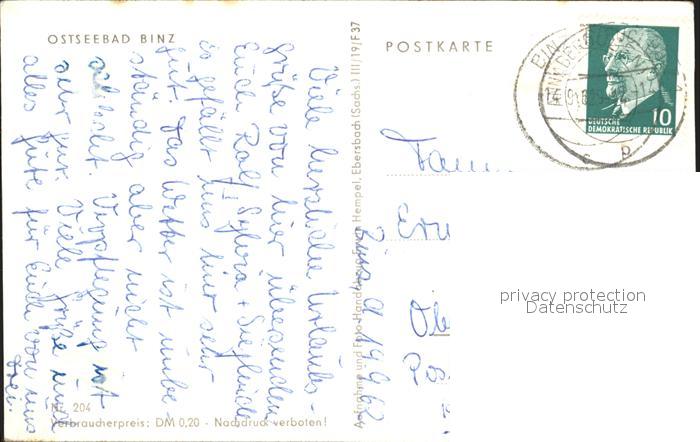 OSTSEEBAD BINZ
Viele herzliche Urlaubs-
grüße von hier übersenden
Euch Rolf, Sylvia + Sieglinde
es gefällt uns hier sehr
gut. Das Wetter ist unbe-
ständig aber nicht
schlecht. Verpflegung ist
sehr gut. Viele Grüße und
alles Gute für Euch von uns
drei.
Binz, d. 14.9.62
Nr. 204
Verbraucherpreis: DM 0,20 - Nachdruck verboten!
Aufnahme und Foto-Handabzug Erwin Hempel, Ebersbach (Sachs.) III/19/F37
POSTKARTE
DEUTSCHE
DEMOKRATISCHE REPUBLIK
10
Fam
privacy protection
Datenschutz